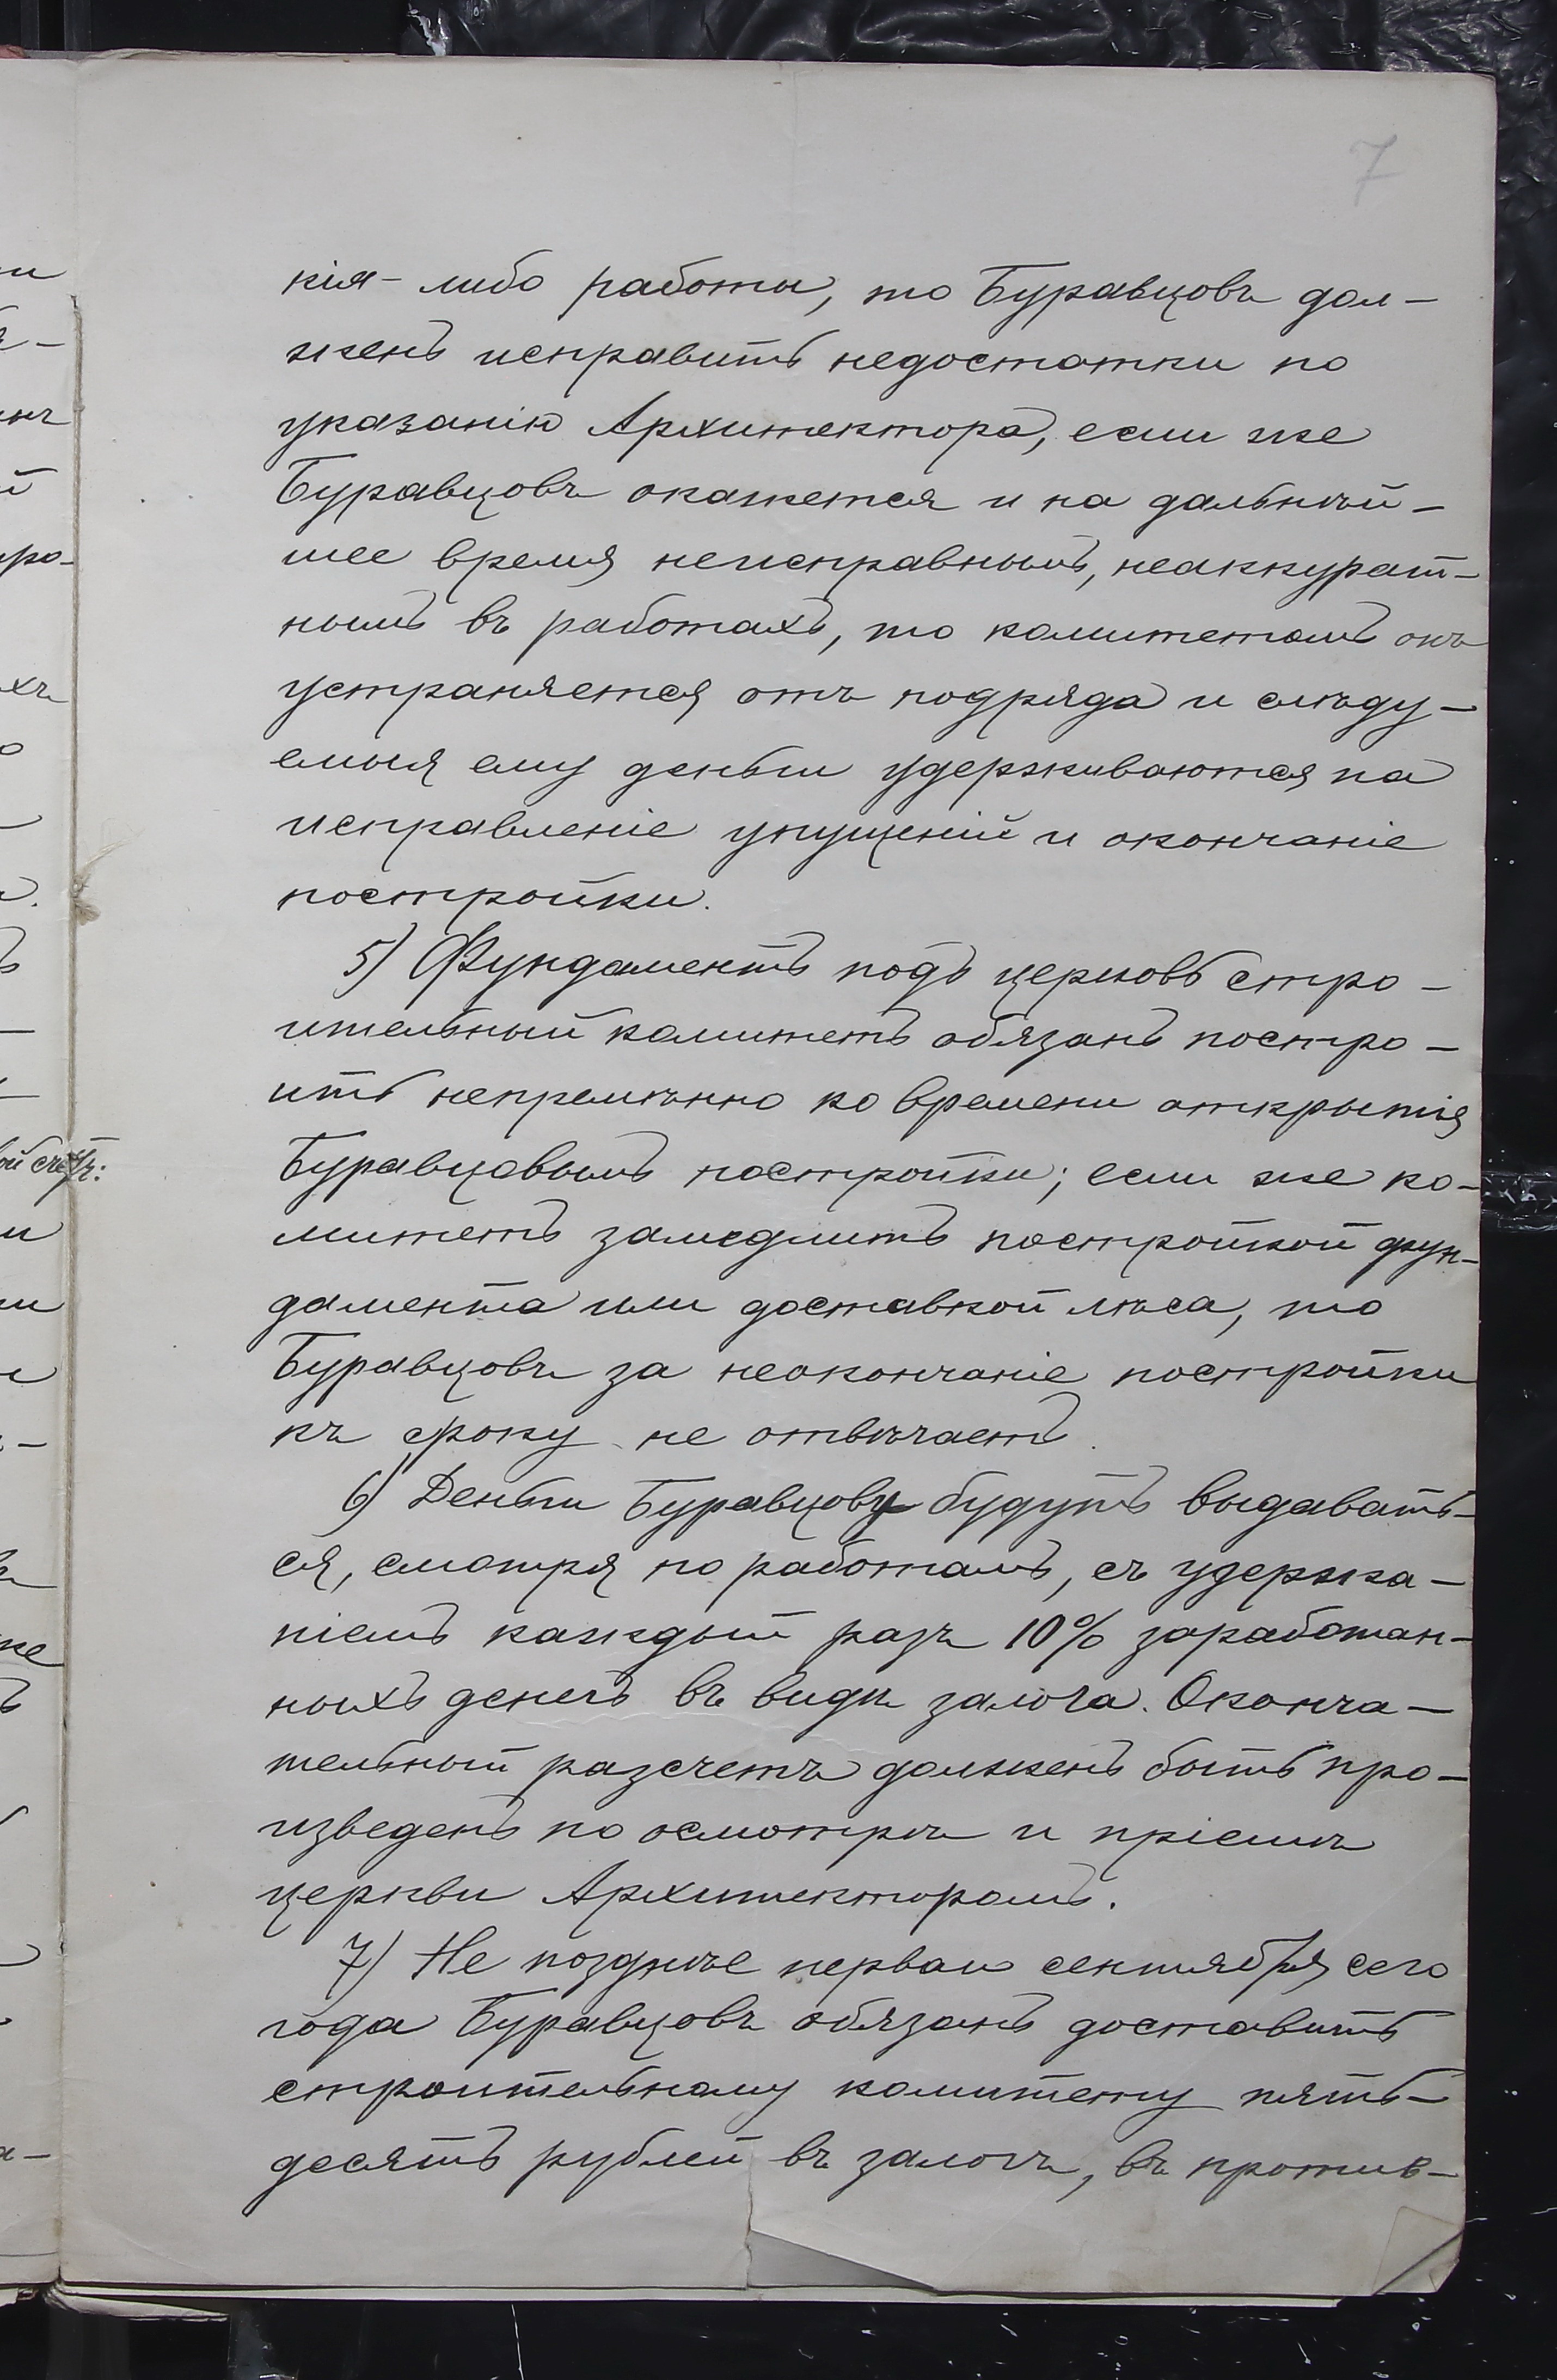 7
кія-либо работы, то Буравцовъ дол-
женъ исправить недостатки по
указанію Архитектора, если же
Буравцовъ окажется и на дальнѣй-
шее время неисправнымъ, неаккурат-
нымъ въ работахъ, то комитетомъ онъ
устраняется отъ подряда и слѣду-
емыя ему деньги удерживаются на
исправленіе упущеній и окончаніе
постройки.
5) Фундаментъ подъ церковь стро-
ительный комитетъ обязанъ постро-
ить непремѣнно ко времени открытія
Буравцовымъ постройки; если же ко-
митетъ замедлитъ постройкой фун-
дамента или доставкой лѣса, то
Буравцовъ за неокончаніе постройки
къ сроку не отвѣчаетъ.
6) Деньги Буравцову будутъ выдавать-
ся, смотря по работамъ, съ удержа-
ніемъ каждый разъ 10% заработан-
ныхъ денегъ въ видѣ залога. Оконча-
тельный разсчетъ долженъ быть про-
изведенъ по осмотрѣ и пріемѣ
церкви Архитекторомъ.
7) Не позднѣе перваго сентября сего
года Буравцовъ обязанъ доставить
строительному комитету пять-
десятъ рублей въ залогъ, въ против-